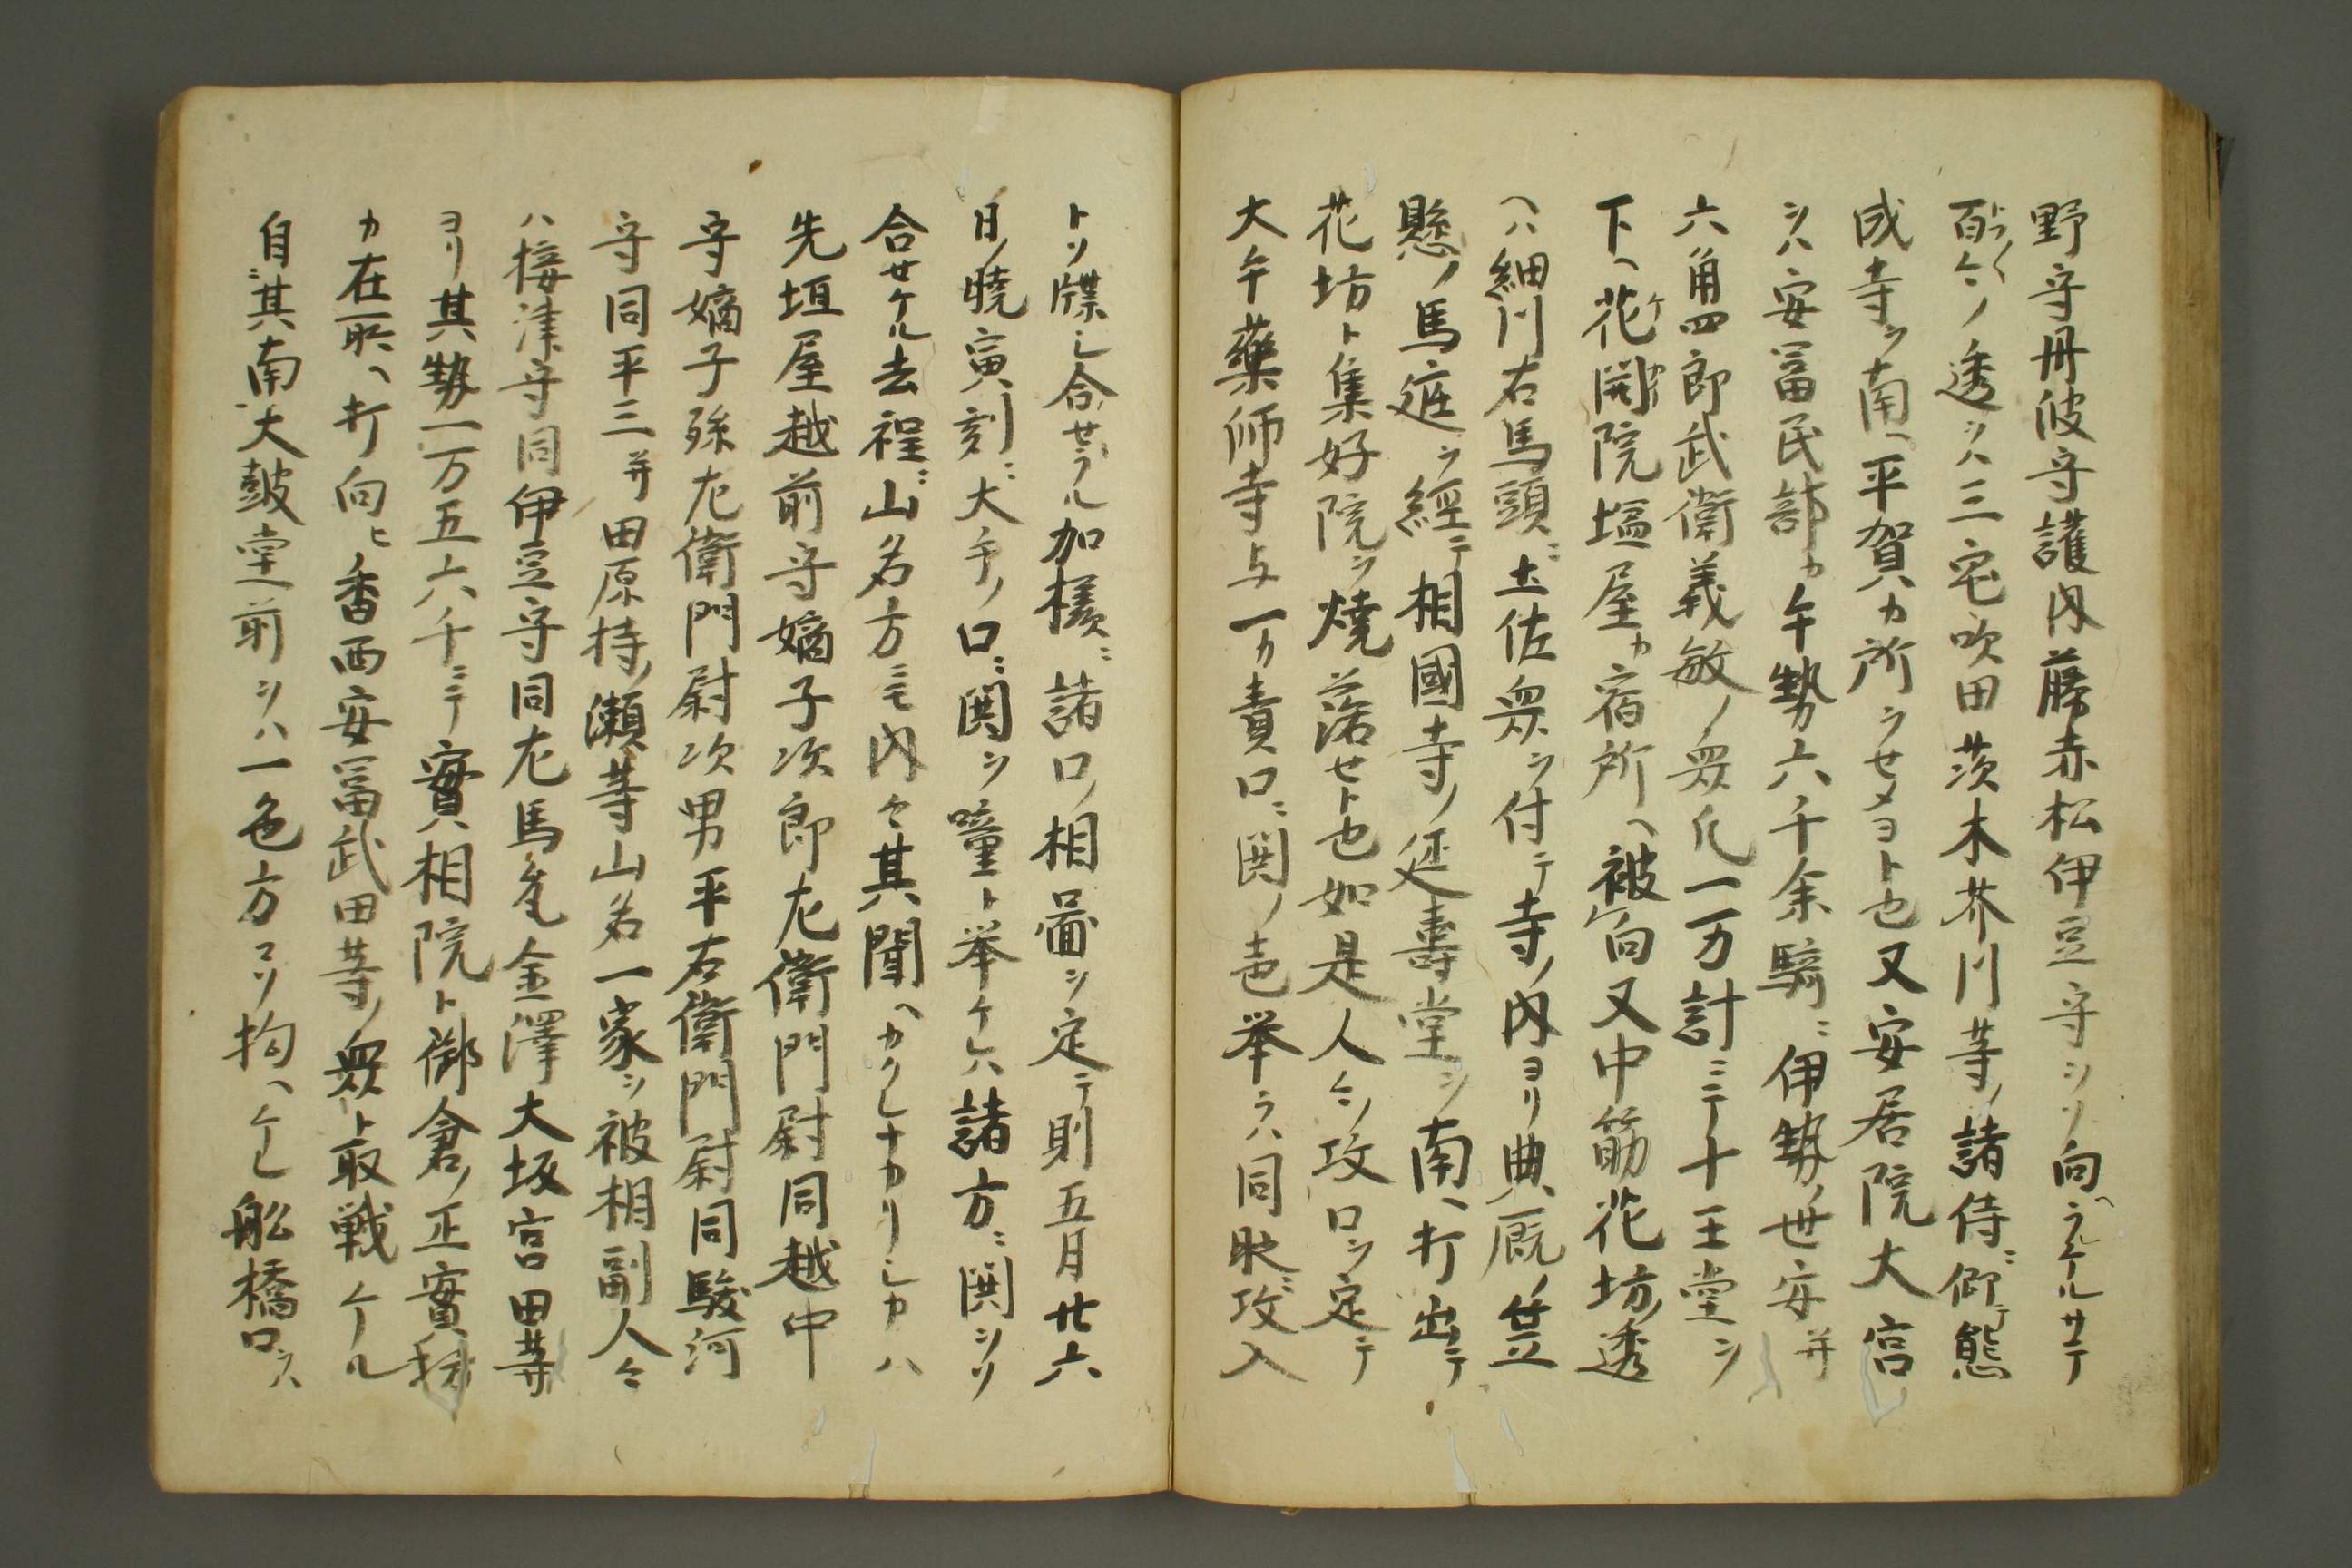 野守丹波守護内藤赤松伊豆守ヲソ向ヘラルケルサテ
百々ノ透ヲハ三宅吹田茨木芥川等ノ諸侍ニ仰テ態
成寺ヲ南ヘ平賀カ所ヲセメヨト也又安居院大宮
ヲハ安冨民部カ手勢六千余騎ニ伊勢ノ世安并
六角四郎武衛義敏ノ衆凡一万計ニテ十王堂ヲ
下ヘ花開院塩屋カ宿所ヘ被向又中筋花坊ノ透
ヘハ細川右馬頭ニ土佐衆ヲ付テ寺ノ内ヨリ典厩ノ笠
懸ノ馬庭ヲ經テ相國寺ノ延壽堂ヲ南ヘ打出テ
花坊ト集好院ヲ焼落セト也如是人々ノ攻口ヲ定テ
大手薬師寺与一カ責口ニ関ノ声挙ラハ同時ニ攻入
トソ牒シ合セラル加樣ニ諸口ノ相圖ヲ定テ則五月廿六
日ノ曉寅刻ニ大手ノ口ニ関ヲ噇ト挙ケハ諸方ニ関ヲソ
合セケル去程ニ山名方ニモ内々其聞ヘカクレナカリシカハ
先垣屋越前守嫡子次郎左衛門尉同越中
守嫡子孫左衛門尉次男平右衛門尉同駿河
守同平三并田原持ノ瀬等山名一家ヲ被相副人々
ハ接津守同伊豆守同左馬允金澤大坂宮田等
ヨリ其勢一万五六千ニテ實相院ト御倉ノ正實
カ在所ヘ打向ヒ香西安冨武田等ノ衆ト取戦ケル
自其南ニ大皷堂ノ前ヲハ一色方ヨリ拘ヘケレ舩橋口ヲハ